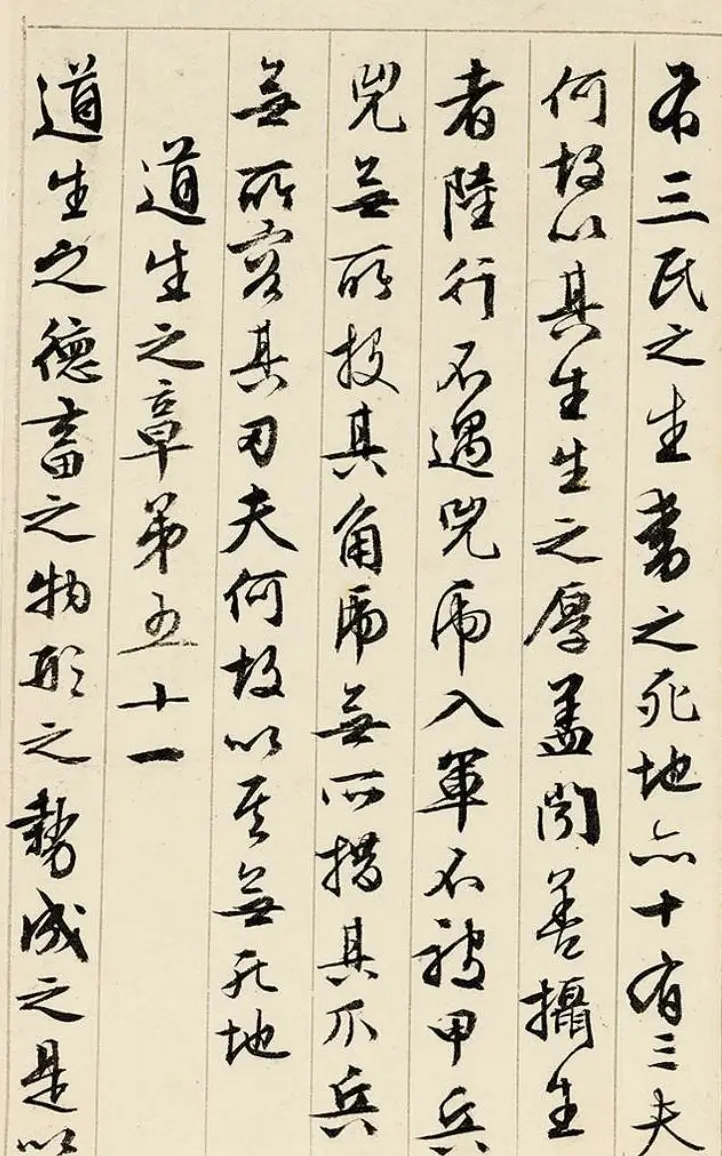 有三民之生動之死地亦十有三夫
何故以其生生之厚蓋聞善攝生
者陸行不遇兕虎入軍不被甲兵
兕無所投其角虎無所措其爪兵
無所容其刃夫何故以其無死地
道生之章第五十一
道生之德畜之物形之勢成之是以